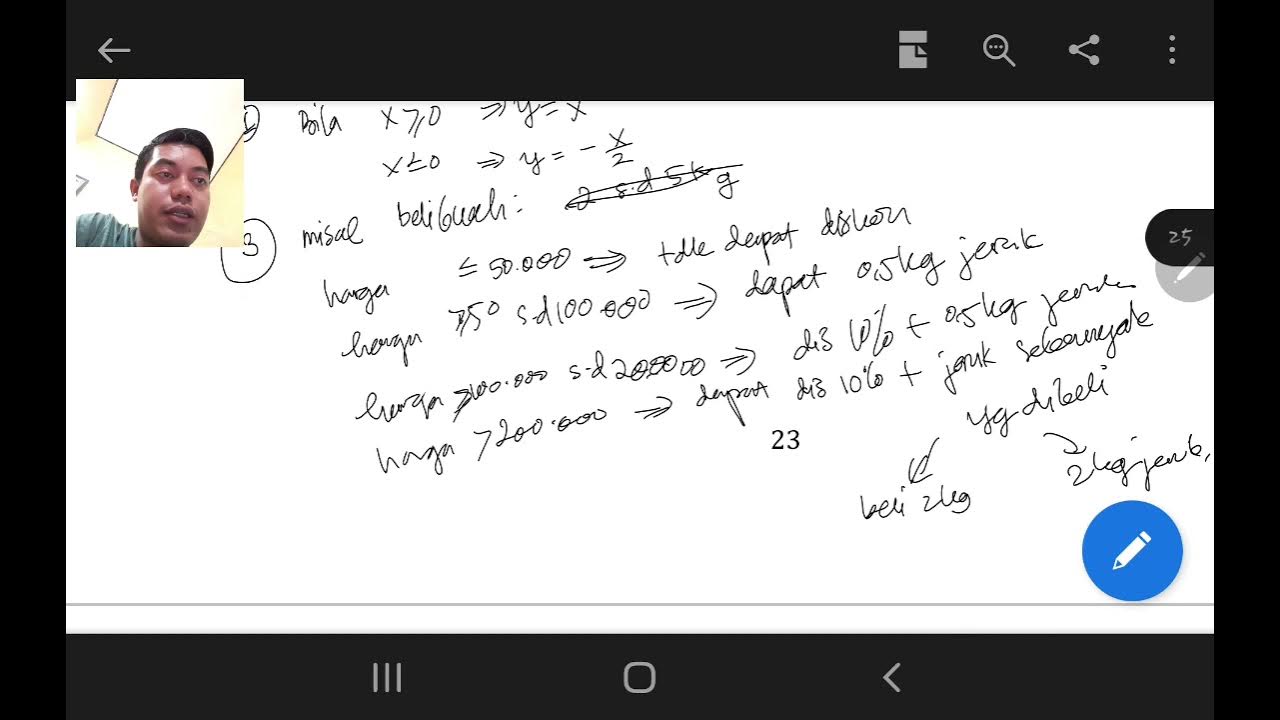 Bila x ≥ 0 ⇒ y = x
x ≤ 0 ⇒ y = - x/2
3 misal beli buah: 2 s.d 5 kg
harga ≤ 50.000 ⇒ tdk dapat diskon
harga ≥ 50 s.d 100.000 ⇒ dapat 0,5 kg jeruk
harga ≥ 100.000 s.d 200.000 ⇒ dis 10% + 0,5 kg jeruk
harga > 200.000 ⇒ dapat dis 10% + jeruk sebanyak
yg dibeli
23
beli 2 kg
2 kg jeruk,
25